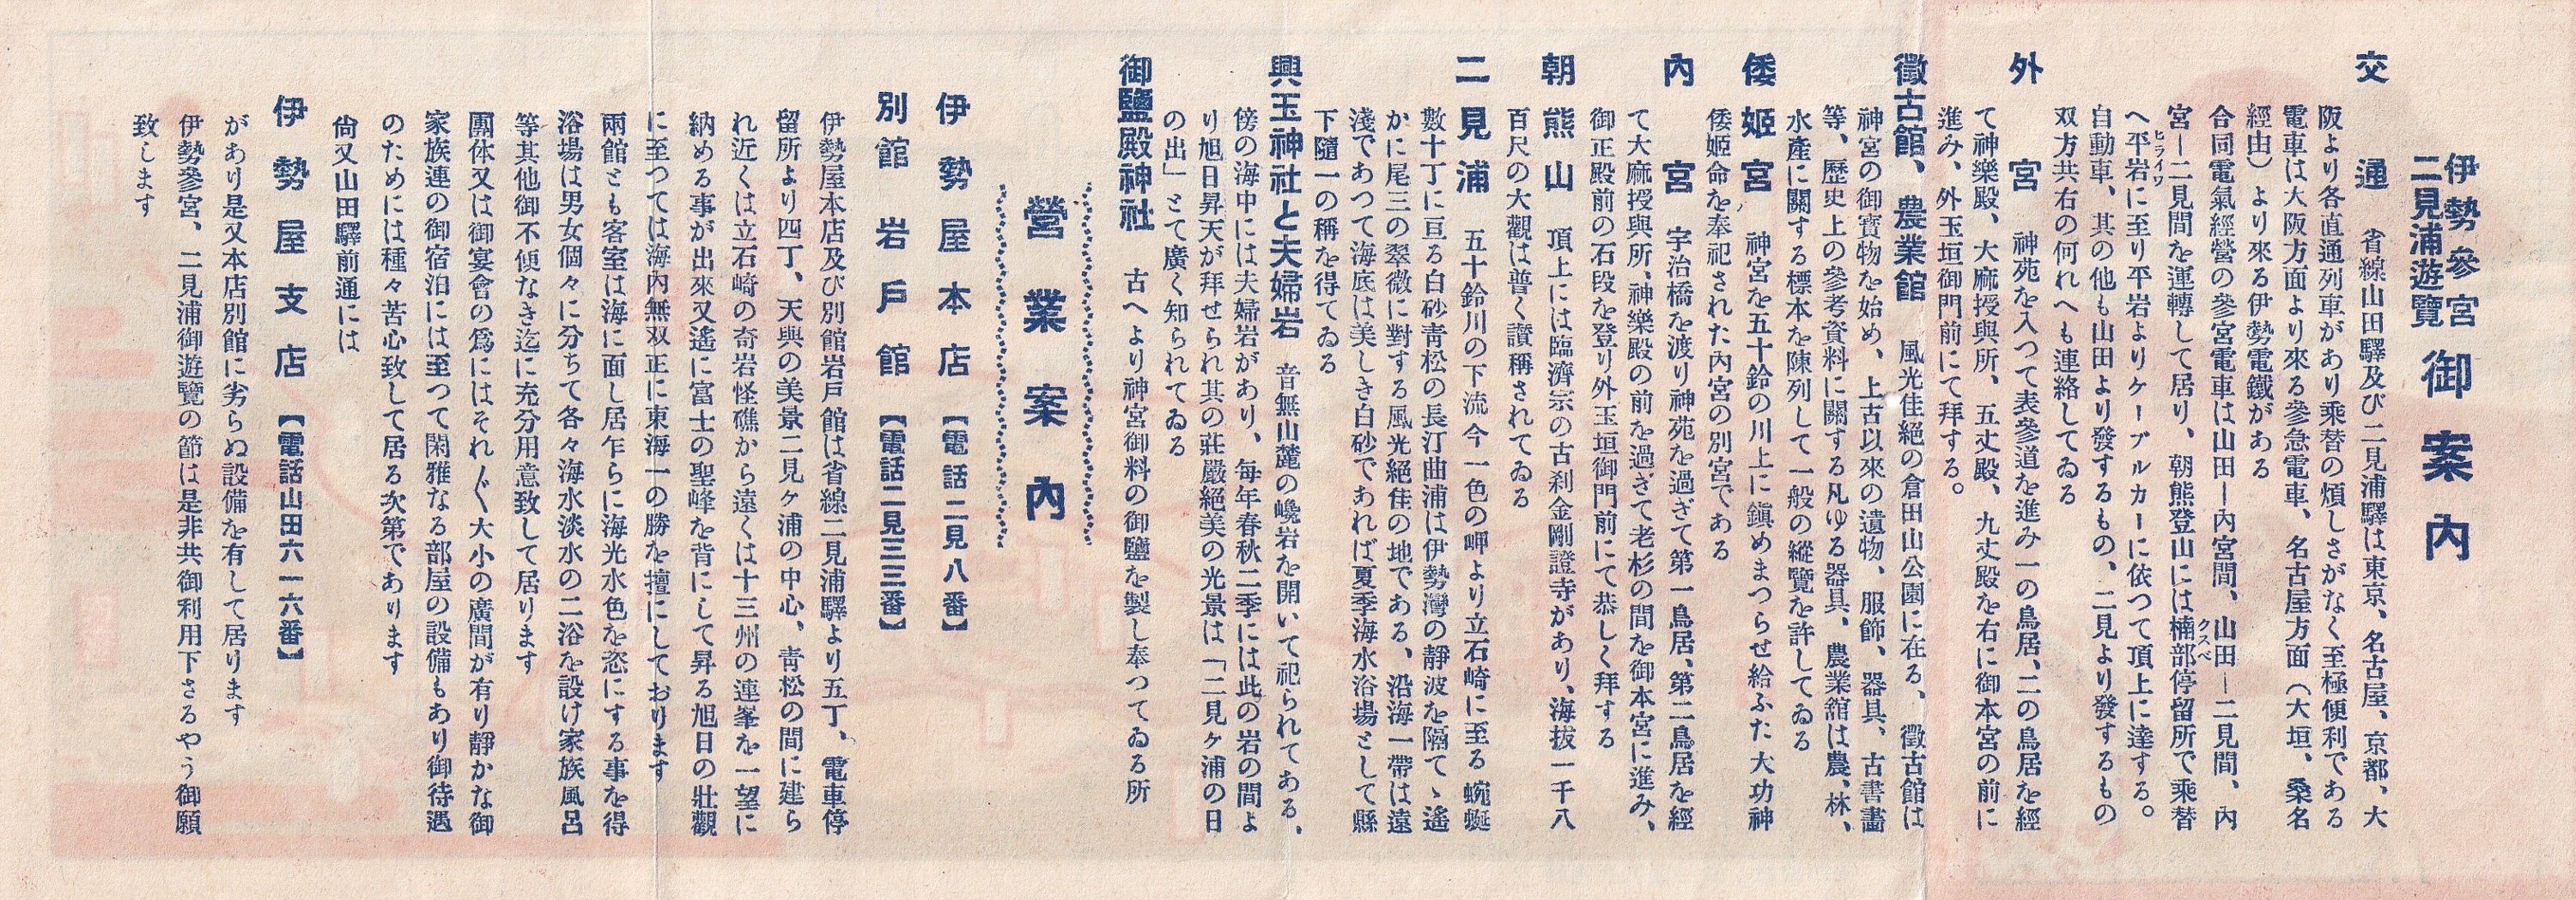 伊勢參宮
二見浦遊覽
御案內
交通 省線山田驛及び二見浦驛は東京、名古屋、京都、大
阪より各直通列車があり乘替の煩しさがなく至極便利である
電車は大阪方面より來る參急電車、名古屋方面（大垣、桑名
經由）より來る伊勢電鐵がある
合同電氣經營の參宮電車は山田―內宮間、山田―二見間、內
宮―二見間を運轉して居り、朝熊登山には楠部停留所で乘替
クスベ
へ平岩に至り平岩よりケーブルカーに依つて頂上に達する。
ヒライワ
自動車、其の他も山田より發するもの、二見より發するもの
双方共右の何れへも連絡してゐる
外宮 神苑を入つて表參道を進み一の鳥居、二の鳥居を經
て神樂殿、大麻授與所、五丈殿、九丈殿を右に御本宮の前に
進み、外玉垣御門前にて拜する。
徵古館、農業館 風光佳絕の倉田山公園に在る、徵古館は
神宮の御寶物を始め、上古以來の遺物、服飾、器具、古書畫
等、歷史上の參考資料に關する凡ゆる器具、農業舘は農、林、
水產に關する標本を陳列して一般の縱覽を許してゐる
倭姬宮 神宮を五十鈴の川上に鎭めまつらせ給ふた大功神
倭姬命を奉祀された內宮の別宮である
內宮 宇治橋を渡り神苑を過ぎて第一鳥居、第二鳥居を經
て大麻授與所、神樂殿の前を過ぎて老杉の間を御本宮に進み、
御正殿前の石段を登り外玉垣御門前にて恭しく拜する
朝熊山 頂上には臨濟宗の古刹金剛證寺があり、海拔一千八
百尺の大觀は普く讃稱されてゐる
二見浦 五十鈴川の下流今一色の岬より立石崎に至る蜿蜒
數十丁に亘る白砂靑松の長汀曲浦は伊勢灣の靜波を隔てゝ遙
かに尾三の翠微に對する風光絕佳の地である、沿海一帶は遠
淺であつて海底は美しき白砂であれば夏季海水浴場として縣
下隨一の稱を得てゐる
興玉神社と夫婦岩 音無山麓の巉岩を開いて祀られてある、
傍の海中には夫婦岩があり、每年春秋二季には此の岩の間よ
り旭日昇天が拜せられ其の莊嚴絕美の光景は「二見ヶ浦の日
の出」とて廣く知られてゐる
御鹽殿神社 古へより神宮御料の御鹽を製し奉つてゐる所
營業案內
伊勢屋本店【電話二見八番】
別館 岩戶館【電話二見三三番】
伊勢屋本店及び別館岩戶館は省線二見浦驛より五丁、電車停
留所より四丁、天與の美景二見ヶ浦の中心、靑松の間に建ら
れ近くは立石崎の奇岩怪礁から遠くは十三州の連峯を一望に
納める事が出來又遙に富士の聖峰を背にして昇る旭日の壯觀
に至つては海內無双正に東海一の勝を擅にしております
兩館とも客室は海に面し居乍らに海光水色を恣にする事を得
浴場は男女個々に分ちて各々海水淡水の二浴を設け家族風呂
等其他御不便なき迄に充分用意致して居ります
團体又は御宴會の爲にはそれ〴〵大小の廣間が有り靜かな御
家族連の御宿泊には至つて閑雅なる部屋の設備もあり御待遇
のためには種々苦心致して居る次第であります
尙又山田驛前通には
伊勢屋支店【電話山田六一六番】
があり是又本店別館に劣らぬ設備を有して居ります
伊勢參宮、二見浦御遊覽の節は是非共御利用下さるやう御願
致します